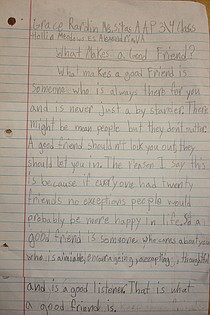 Grace
AAP 3rd/4 Class
Hollin Meadows ES Alexandria VA
What Makes a Good Friend?
What makes a good Friend is
someone who is always there for you
and is never just a by stander. There
might be mean people but they dont matter.
A good friend shouldn't lock you out, they
should let you in. The reason I say this
is because if everyone had twenty
friends no exceptions people would
probably be more happy in life. So a
good friend is someone who cares about you
who is
and is a good listener. That is what
a good friend is.